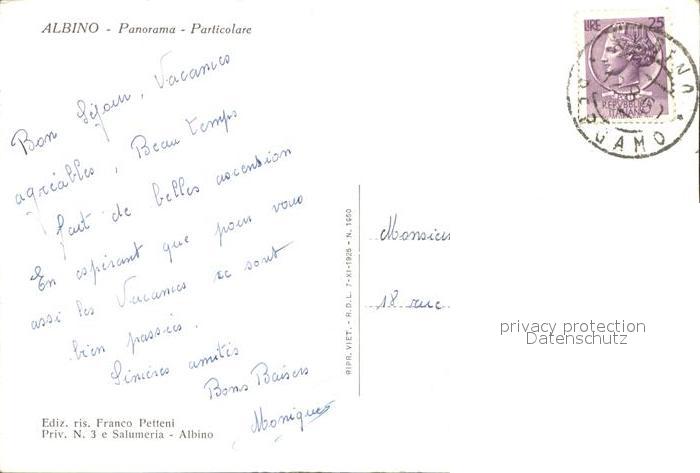 ALBINO - Panorama - Particolare
LIRE 25
REPVBBLICA
ITALIANA
BERGAMO
Bon Séjour, Vacances
agréables, Beau temps
fait de belles ascension
En espérant que pour vous
assi les Vacances se sont
bien passées.
Sincères amitiés
Bons Baisers
Monique
Ediz. ris. Franco Petteni
Priv. N. 3 e Salumeria - Albino
RIPR. VIET. - R.D.L. 7-XI-1925 - N. 1950
Monsieur
18 rue
privacy protection
Datenschutz